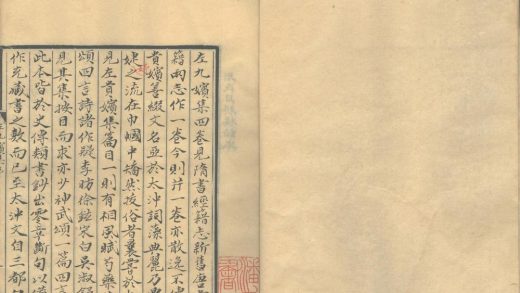 左九嬪集四卷見隋書經籍志新舊唐
籍兩志作一卷今則并一卷亦散逸不
貴嬪善綴文名亞於太沖詞藻典麗乃
婕之流在巾幗中矯然拔俗者曩嘗於
見左貴嬪集篇目一則有相風賦芍藥
頌四言詩諸作疑李昉徐鉉宋白吳淑
見其集按目而求亦少神武頌一篇四言
此本皆於史傳類書鈔出零章斷句以
作充藏書之數而已至太沖文自三都